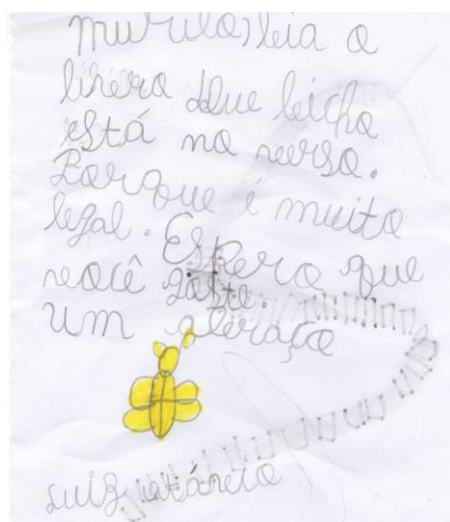 Murilo, leia o
livro Que bicho
está no verso.
Porque é muito
legal. Espero que
você goste.
um abraço
Luiz Otávio